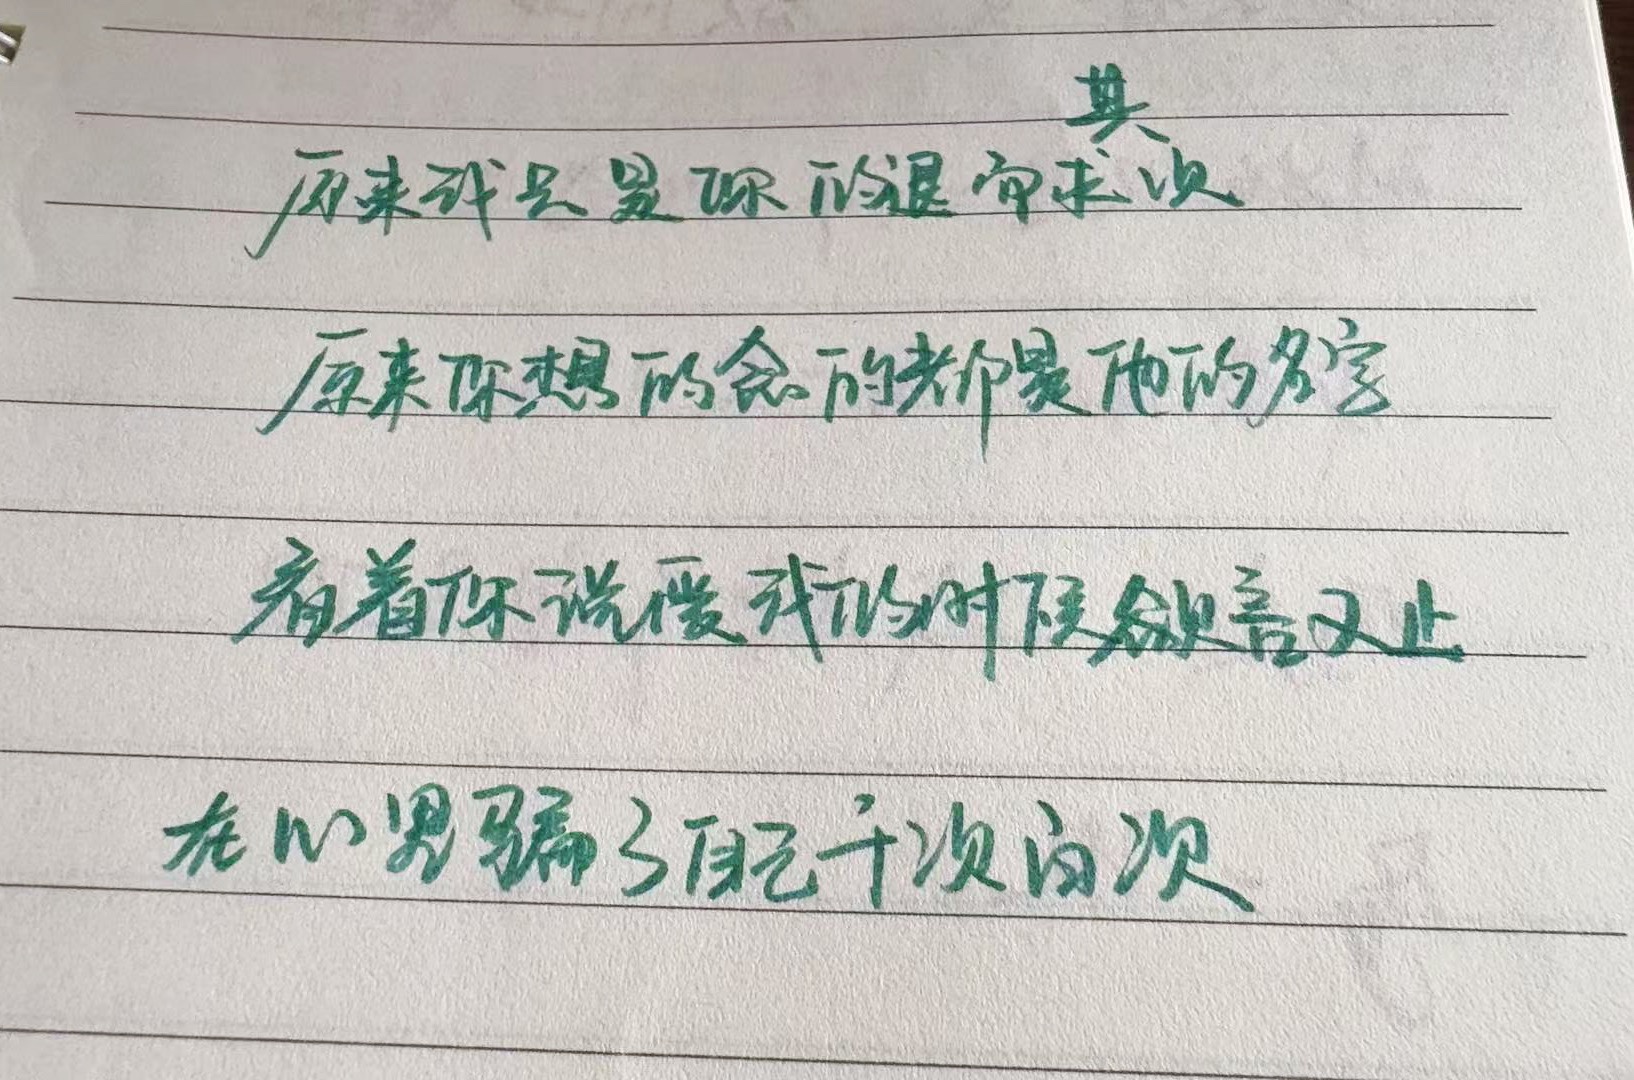 原来我只是你的退而求其次
原来你想的念的都是他的名字
看着你说爱我的时候欲言又止
在心里骗了自己千次百次